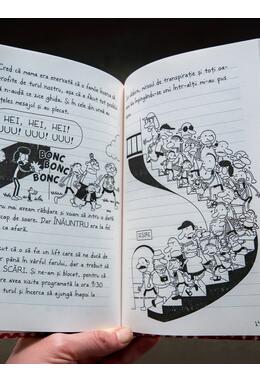 Cred că mama era enervată că o familie încerca să
profite de turul nostru, așa că a făcut tot posibilul
să n-audă ce zice ghida. Și în cele din urmă
mesajul și au plecat.
HEI, HEI, HEI!
UUU! UUU! UUU!
BONC
BONC
BONC
aveam răbdare și voiam să intru o
cap de soare. Dar ÎNĂUNTRU era la
ca afară.
că o să fie un lift care să ne ducă de
până în vârful farului, dar a trebuit să
SCĂRI. Și ne-am și blocat, pentru că
care avea vizita programată la ora 9:30
turul și încerca să ajungă înapoi la
mirosul de transpirație și toți oa-
împingându-se unii într-alții mi-au pus
IEȘIRE